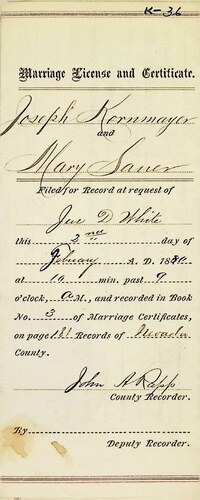 K-36
Marriage License and Certificate.
Joseph Kornmayer
and
Mary Sauer
Filed for Record at request of
Jas D White
this 2nd day of
February A. D. 1880
at 10 min. past 9
o'clock, A M., and recorded in Book
No. 3 of Marriage Certificates,
on page 181 Records of Nevada
County.
John A Rapp
County Recorder.
By
Deputy Recorder.